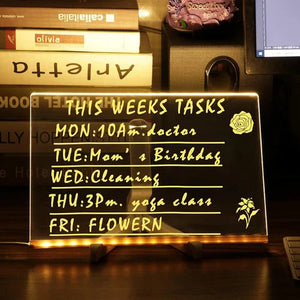 callaitalia
olivia
Arletta
THIS WEEKS TASKS
MON:10Am.doctor
TUE:Mom's Birthday
WED:Cleaning
THU:3Pm. yoga class
FRI: FLOWERN